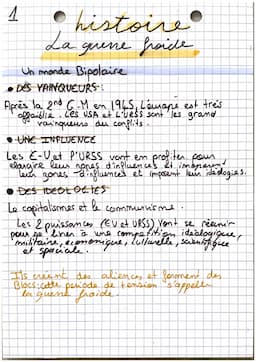 1
histoire
La guerre froide
Un monde Bipolaire
• DES VAINQUEURS :
Après la 2nd G-M en 1945, L'europe est très
affaiblie. LES USA et L'URSS sont les grand
vainqueurs du conflits.
• UNE INFLUENCE
Les E-U et l'URSS vont en profiter pour
élargire leur zones d'influences et
leur zones d'influences et imposent leur idéologies.
• DES IDEOLOGIES
Le capitalismes et le communisme.
Les 2 puissances (EU et URSS) vont se réunir
pour se livrer à une compétition idéologique,
militaire, économique, culturelle, scientifique
et spaciale.
Ils créaient des aliences et forment des
Blocs: cette période de tension s'appelle
la guerre froide.